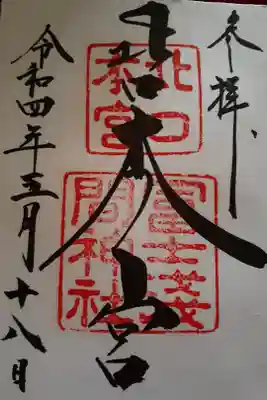 参拝
北口本宮
令和四年五月十八日
北口
本宮
冨士浅
間神社